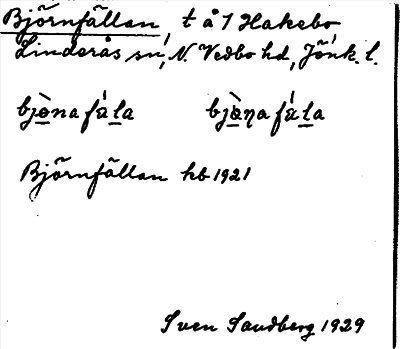 Björnfällan, t å 1 Hakebo
Linderås sn, N. Vedbo hd, Jönk. l.
bjò̱nafá̱ḻa bjò̱ṉafá̱ḻa
Björnfällan hb 1921
Sven Sandberg 1929